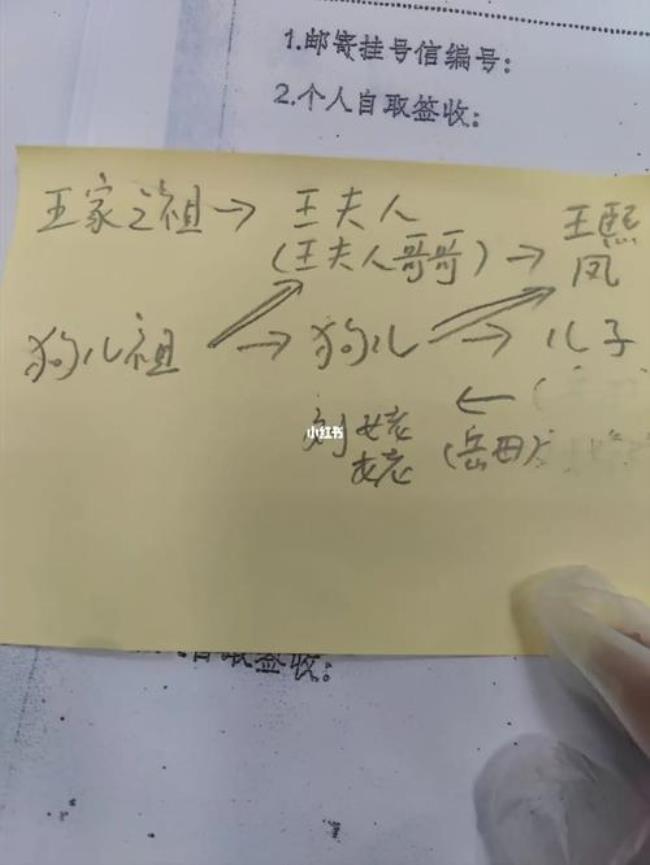 1.邮寄挂号信编号:
2.个人自取签收:
王家之祖→ 王夫人
(王夫人哥哥)→ 王熙凤
狗儿祖 → 狗儿 → 儿子
←
刘姥姥 (岳母)
小红书
自取签收: